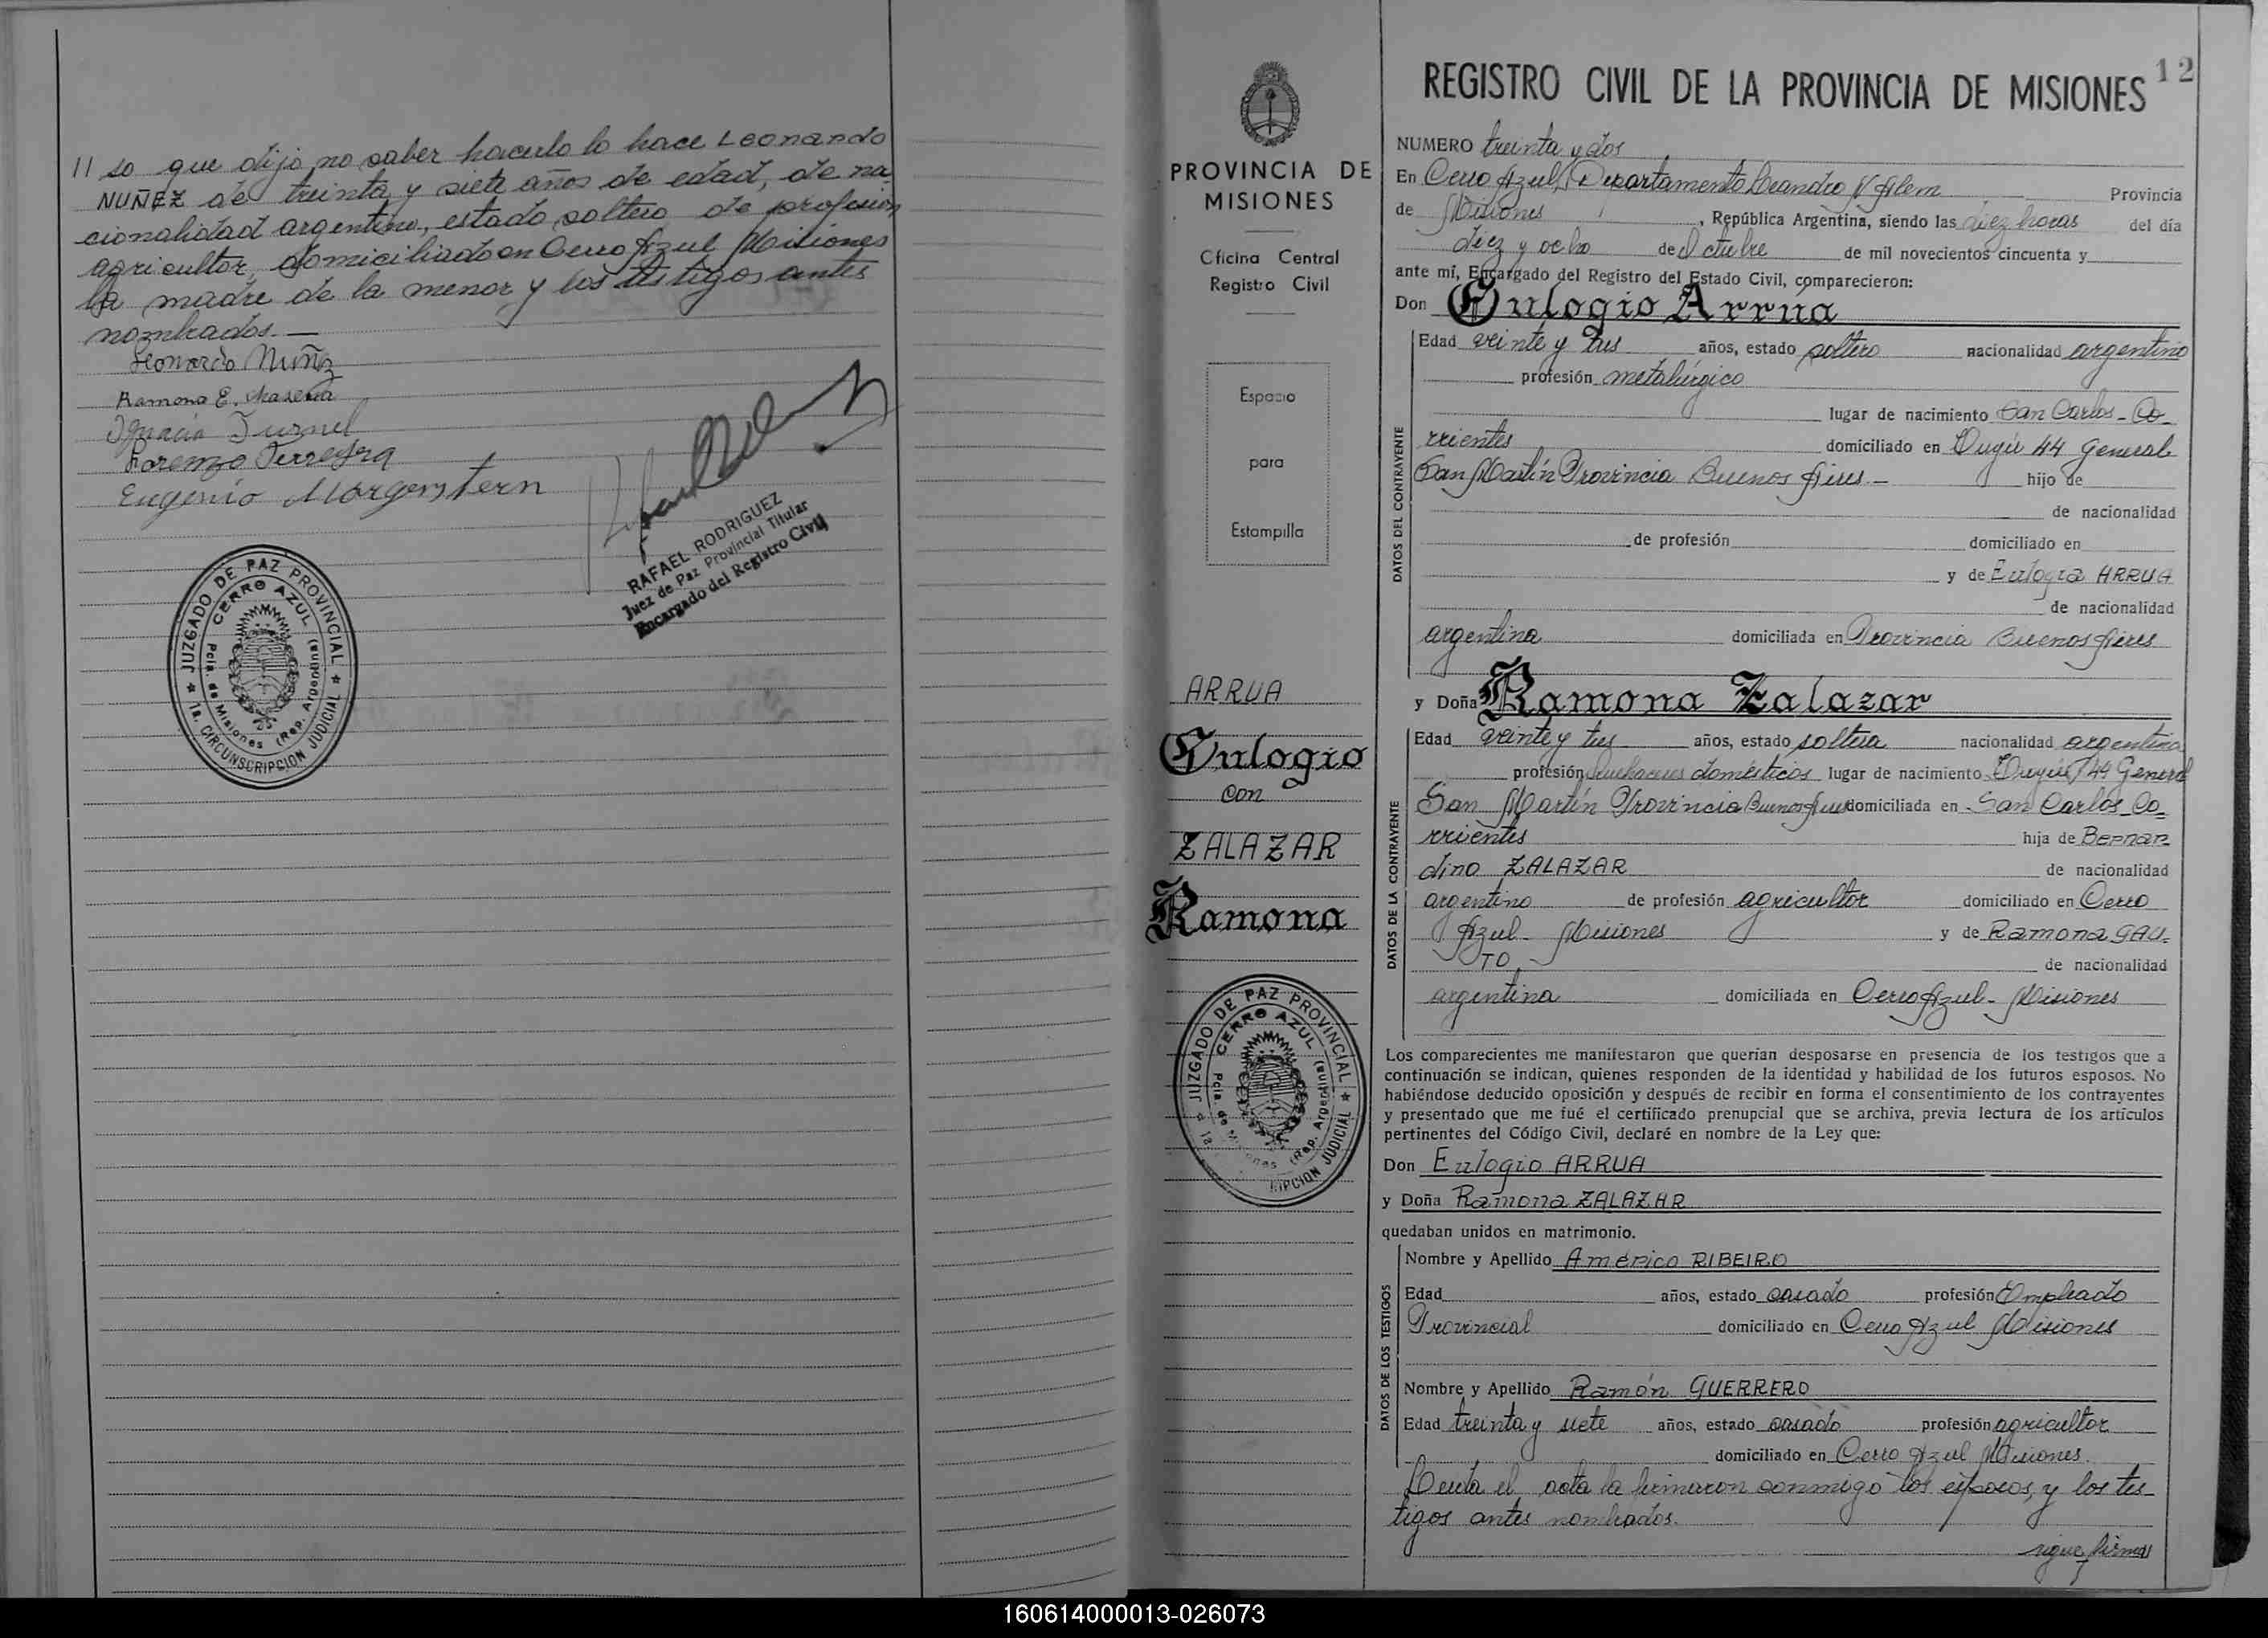 // so que dijo no saber hacerlo lo hace Leonardo
NUÑEZ de treinta y siete años de edad, de na
cionalidad argentino, estado soltero de profesión
agricultor, domiciliado en Cerro Azul Misiones
la madre de la menor y los testigos antes
nombrados.—
Leonardo Nuñz
Ramona E.
Ignacio
Lorenzo Ferreyra
Eugenio Morgenstern
RAFAEL RODRIGUEZ
Juez de Paz Provincial Titular
Encargado del Registro Civil
JUZGADO DE PAZ PROVINCIAL
CERRO AZUL
Pcia. de Misiones (Rep. Argentina)
1a. CIRCUNSCRIPCION JUDICIAL
PROVINCIA DE
MISIONES
Oficina Central
Registro Civil
Espacio
para
Estampilla
ARRUA
Eulogio
con
ZALAZAR
Ramona
JUZGADO DE PAZ PROVINCIAL
CERRO AZUL
Pcia. de Misiones (Rep. Argentina)
1a. RIPCION JUDICIAL
12
REGISTRO CIVIL DE LA PROVINCIA DE MISIONES
NUMERO treinta y dos
En Cerro Azul, Departamento Leandro N Alem Provincia
de Misiones, República Argentina, siendo las diez horas del día
diez y ocho de Octubre de mil novecientos cincuenta y
ante mí, Encargado del Registro del Estado Civil, comparecieron:
Don Eulogio Arrúa
DATOS DEL CONTRAYENTE
Edad veinte y tres años, estado soltero nacionalidad argentino
profesión metalúrgico
lugar de nacimiento San Carlos - Co-
rrientes domiciliado en 44 General
San Martín Provincia Buenos Aires.- hijo de
de nacionalidad
de profesión domiciliado en
y de Eulogia ARRUA
de nacionalidad
argentina domiciliada en Provincia Buenos Aires
y Doña Ramona Zalazar
DATOS DE LA CONTRAYENTE
Edad veinte y tres años, estado soltera nacionalidad argentina
profesión quehaceres domésticos lugar de nacimiento 44 General
San Martín Provincia Buenos Aires domiciliada en San Carlos Co-
rrientes hija de Bernar-
dino ZALAZAR de nacionalidad
argentino de profesión agricultor domiciliado en Cerro
Azul - Misiones y de Ramona GAU-
TO de nacionalidad
argentina domiciliada en Cerro Azul - Misiones
Los comparecientes me manifestaron que querían desposarse en presencia de los testigos que a
continuación se indican, quienes responden de la identidad y habilidad de los futuros esposos. No
habiéndose deducido oposición y después de recibir en forma el consentimiento de los contrayentes
y presentado que me fué el certificado prenupcial que se archiva, previa lectura de los artículos
pertinentes del Código Civil, declaré en nombre de la Ley que:
Don Eulogio ARRUA
y Doña Ramona ZALAZAR
quedaban unidos en matrimonio.
DATOS DE LOS TESTIGOS
Nombre y Apellido Américo RIBEIRO
Edad años, estado casado profesión Empleado
Provincial domiciliado en Cerro Azul Misiones
Nombre y Apellido Ramón GUERRERO
Edad treinta y siete años, estado casado profesión agricultor
domiciliado en Cerro Azul Misiones.
Leida el acta la firmaron conmigo los esposos, y los tes-
tigos antes nombrados.
sigue firmas
160614000013-026073